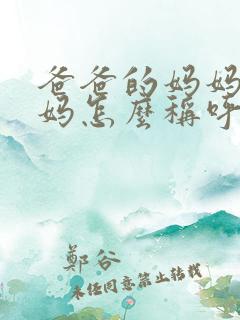 爸爸的妈妈
妈怎麽稱呼
鄭谷
未经同意禁止转载